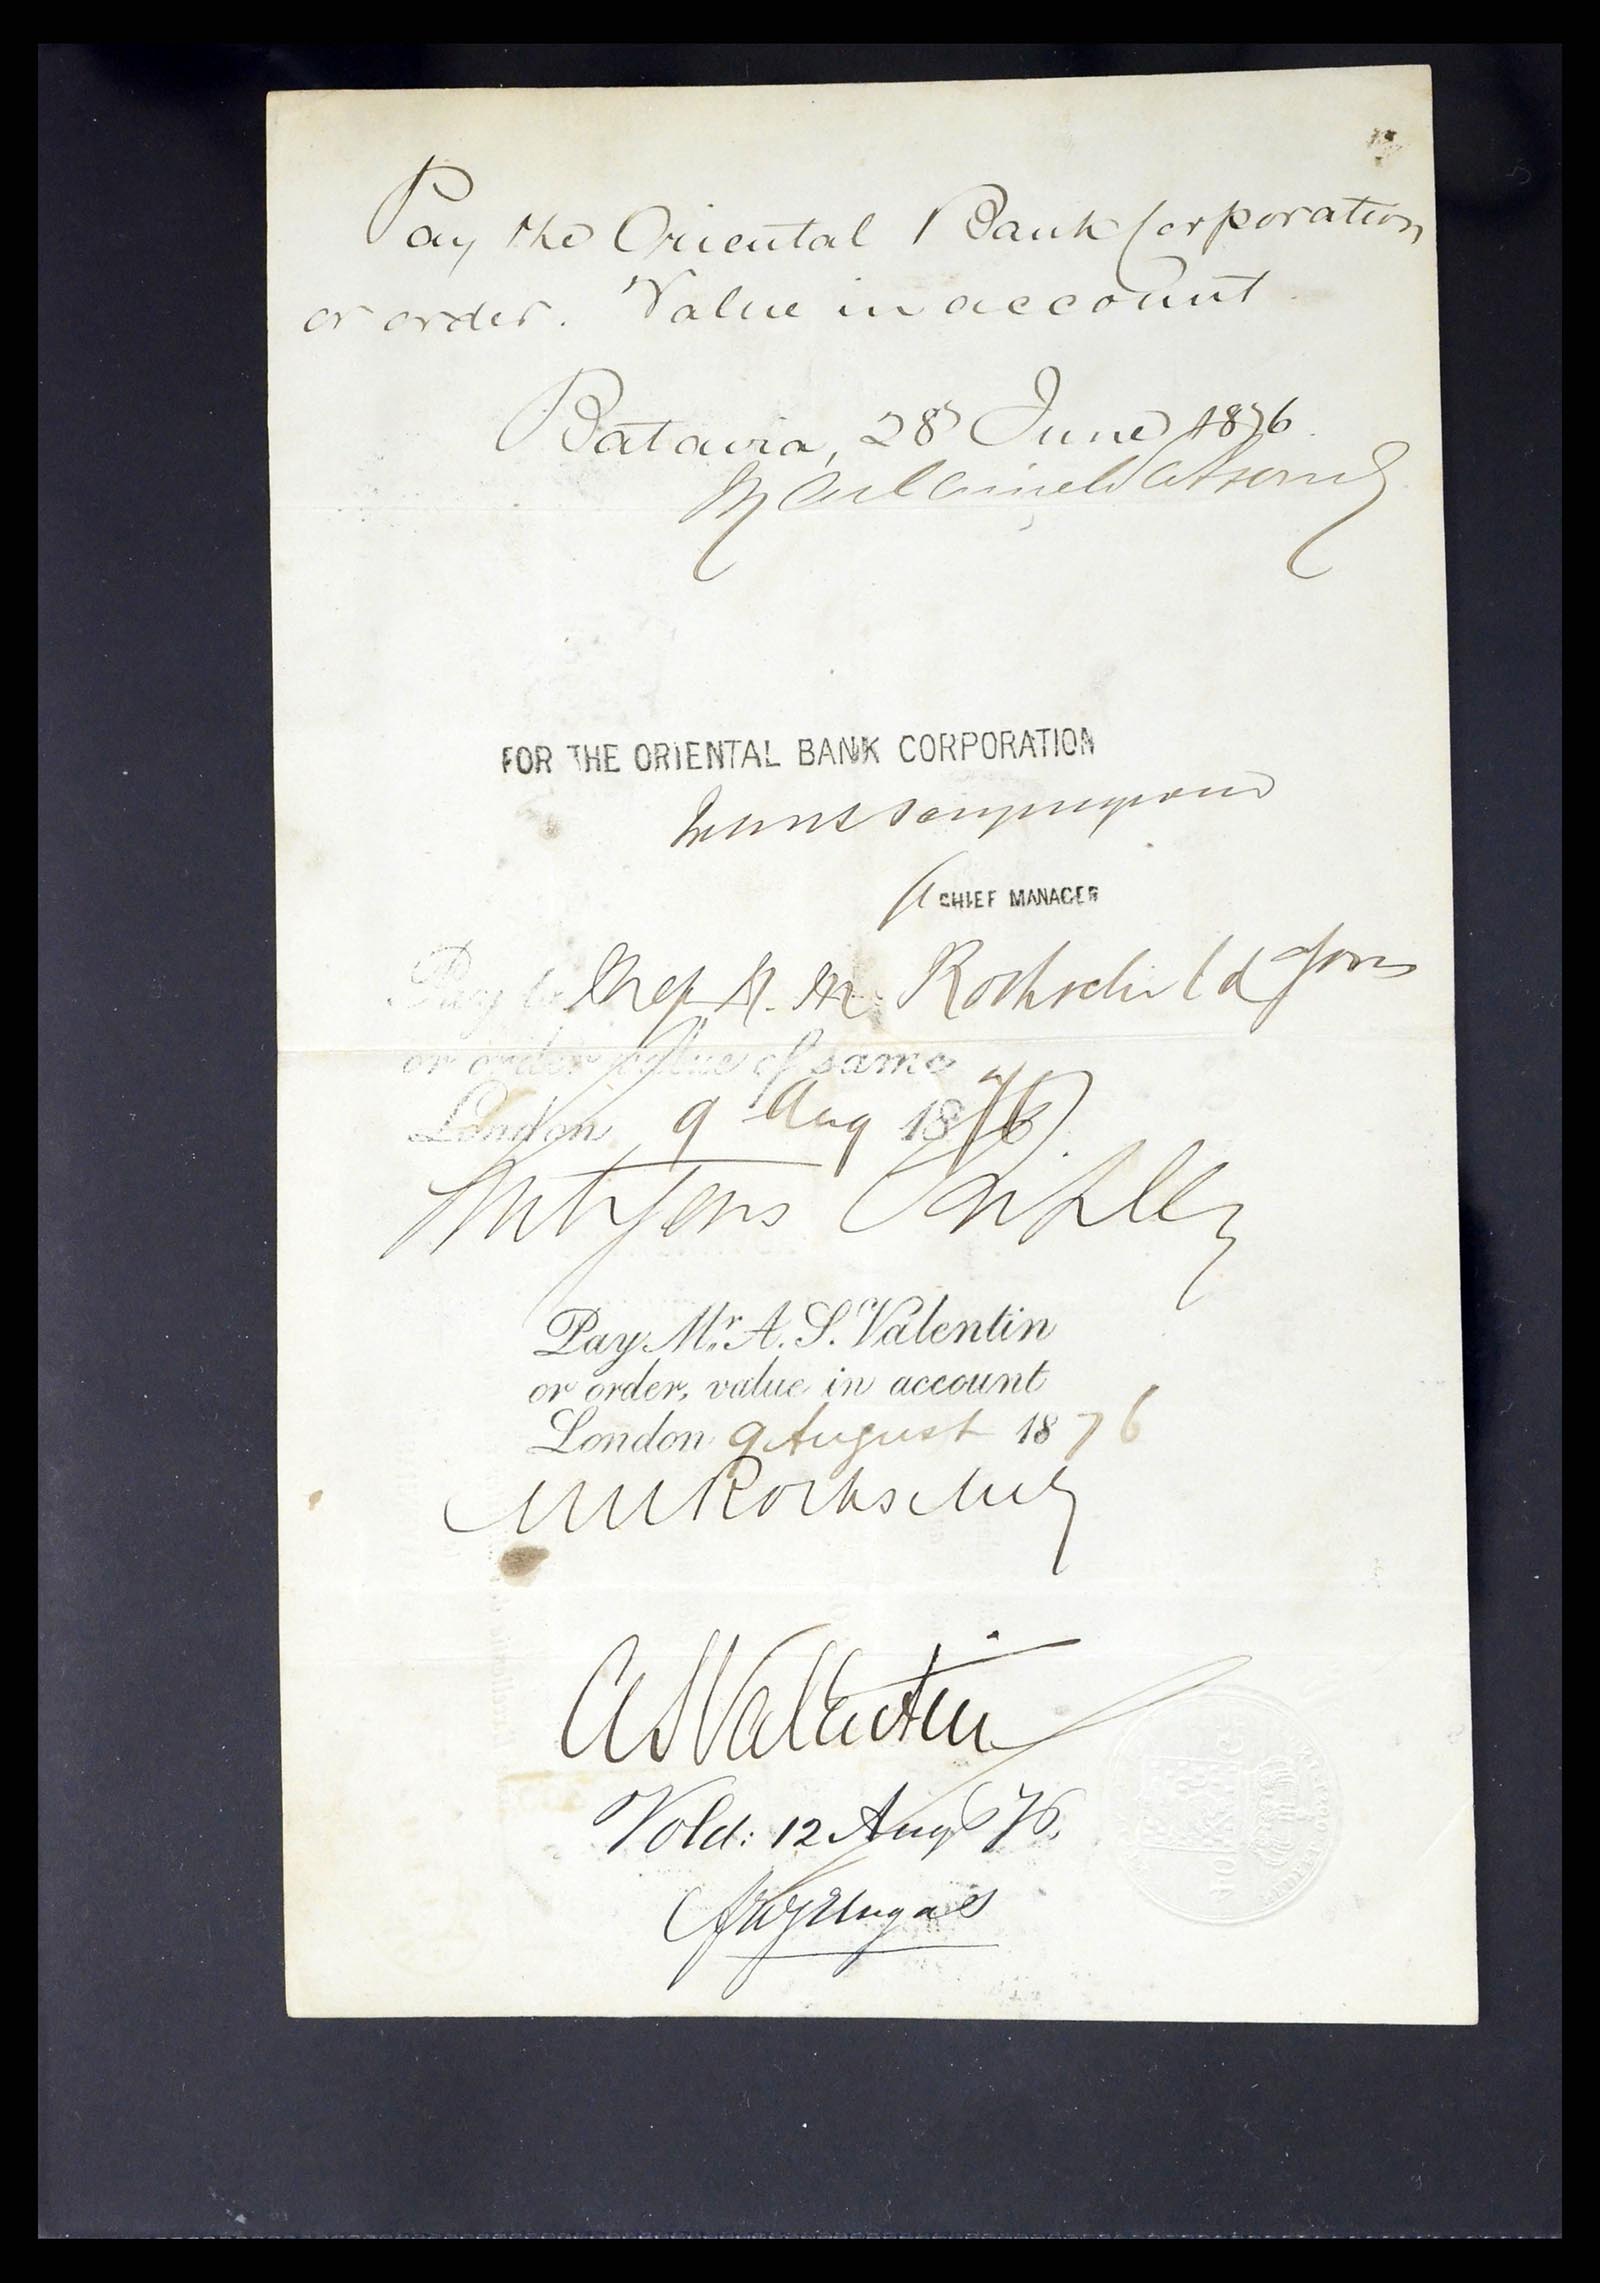 Pay the Oriental Bank Corporation
or order. Value in account
Batavia, 28 June 1876
Maclaine Watson &
FOR THE ORIENTAL BANK CORPORATION
CHIEF MANAGER
Pay to N. M. Rothschild & Sons
or order value of same
London 9 Aug 1876
Pay Mr. A. S. Valentin
or order, value in account
London 9 August 1876
NMRothschild
ASValentin
Vold: 12 Aug 76.